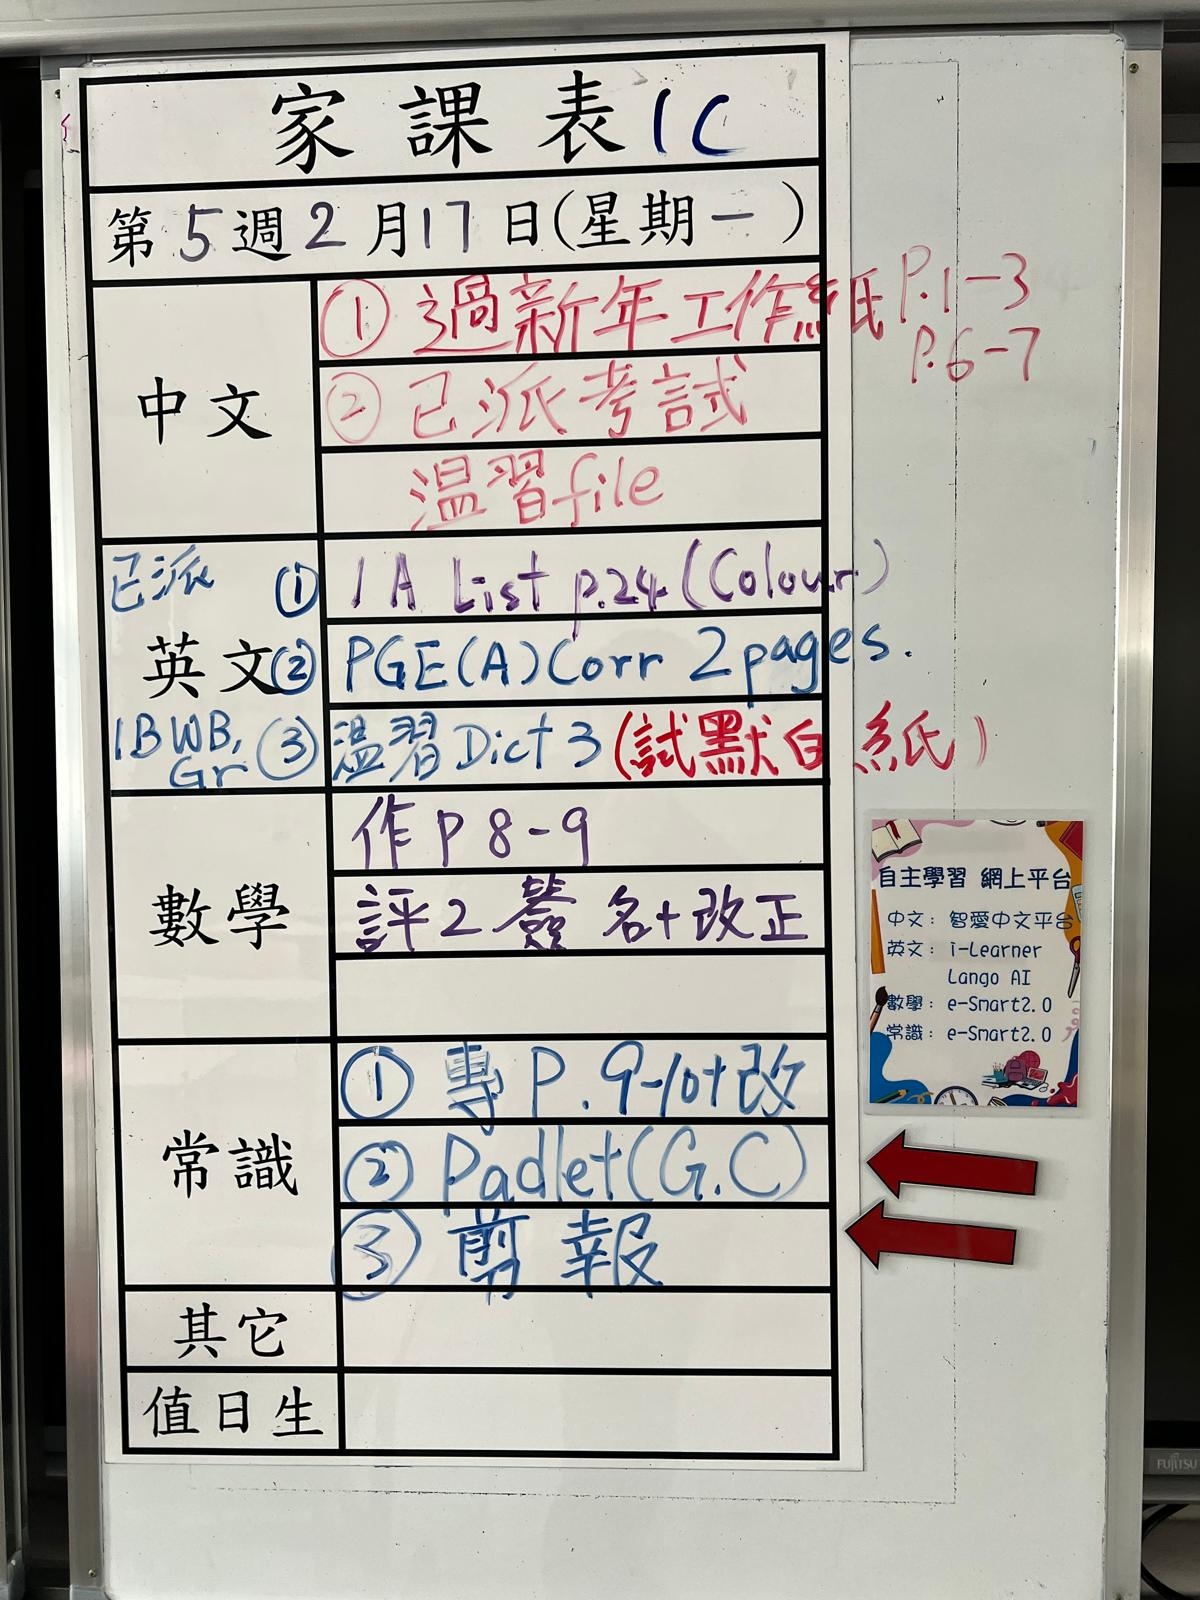 家課表 1C
第5週2月17日(星期一)
中文
① 過新年工作紙 P.1-3
P.6-7
② 已派考試
温習file
英文
已派
① 1A List p.24 (Colour)
② PGE(A)Corr 2pages.
1BWB,
Gr
③ 温習Dict 3 (試默白紙)
數學
作P8-9
評2 簽名+改正
常識
① 專P.9-10+改
② Padlet(G.C)
③ 剪報
其它
值日生
自主學習 網上平台
中文：智愛中文平台
英文：i-Learner
Lango AI
數學：e-Smart2.0
常識：e-Smart2.0
FUJITSU